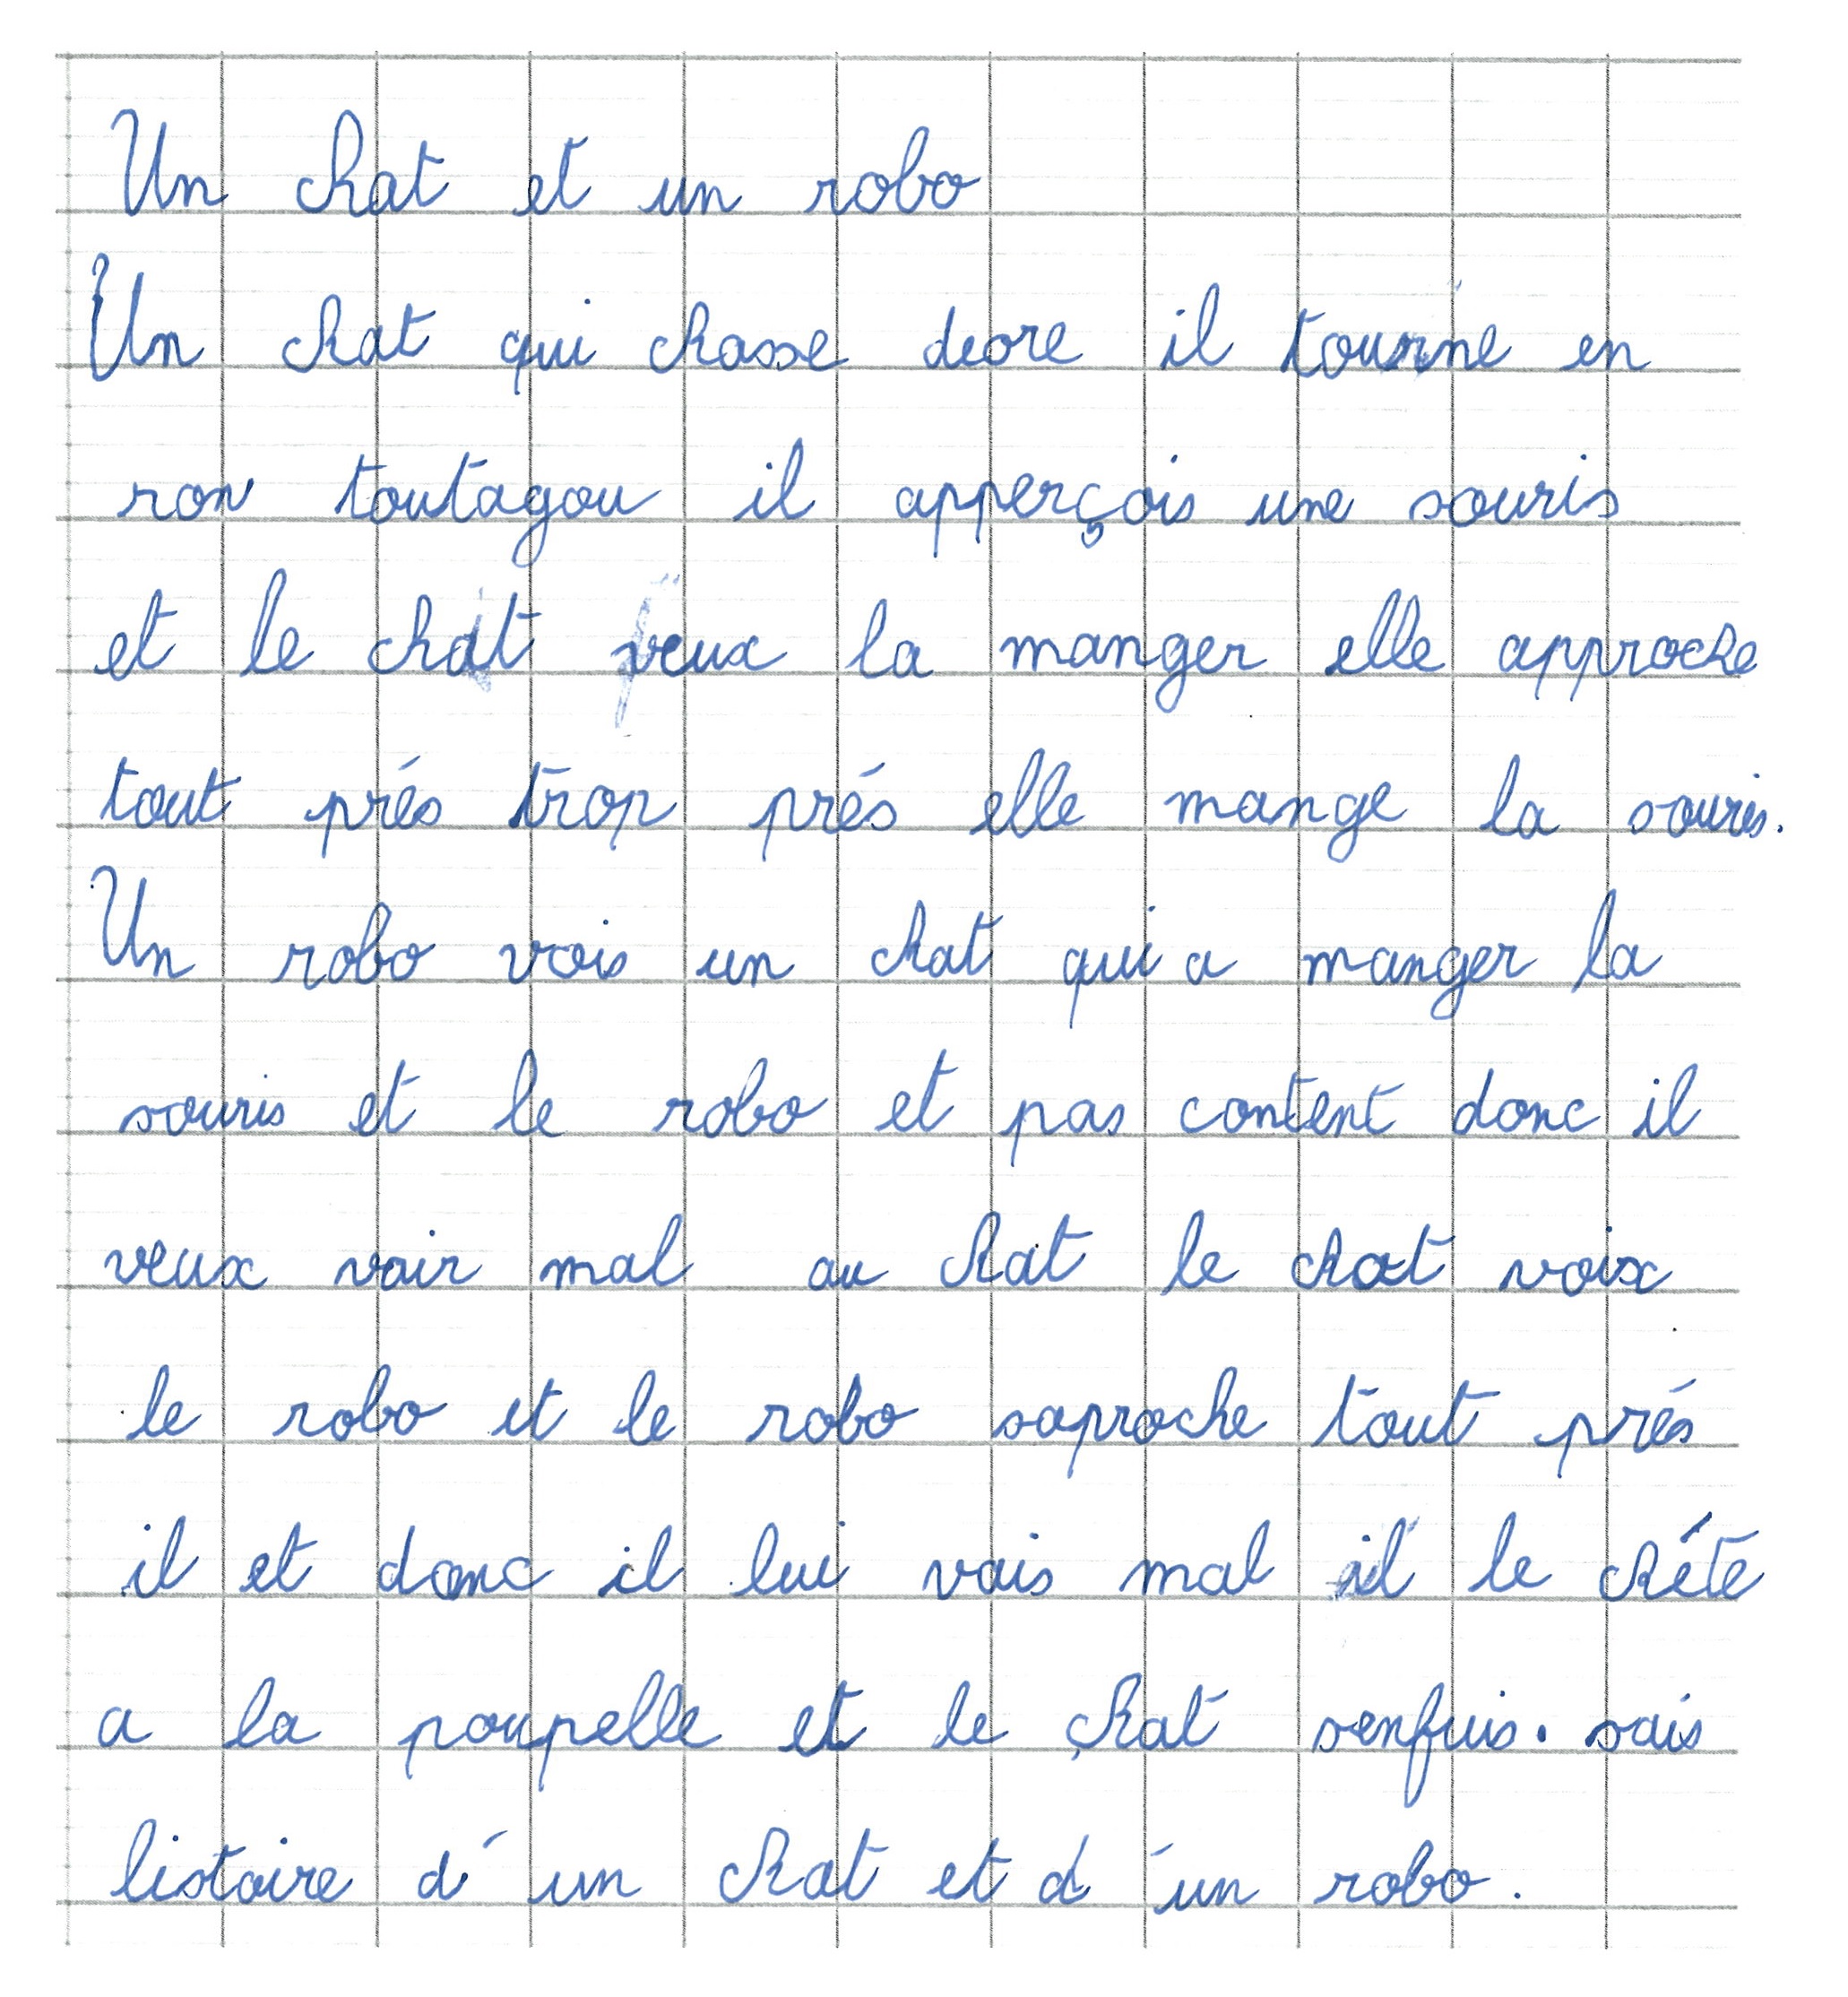 Un chat et un robo
Un chat qui chasse deore il tourne en
ron toutagou il apperçois une souris
et le chat veux la manger elle approche
tout prés trop prés elle mange la souris.
Un robo vois un chat qui a manger la
souris et le robo et pas content donc il
veux voir mal au chat le chat voix
le robo et le robo saproche tout prés
il et donc il lui vais mal il le chéte
a la poupelle et le chat senfuis. sais
listoire d'un chat et d'un robo.